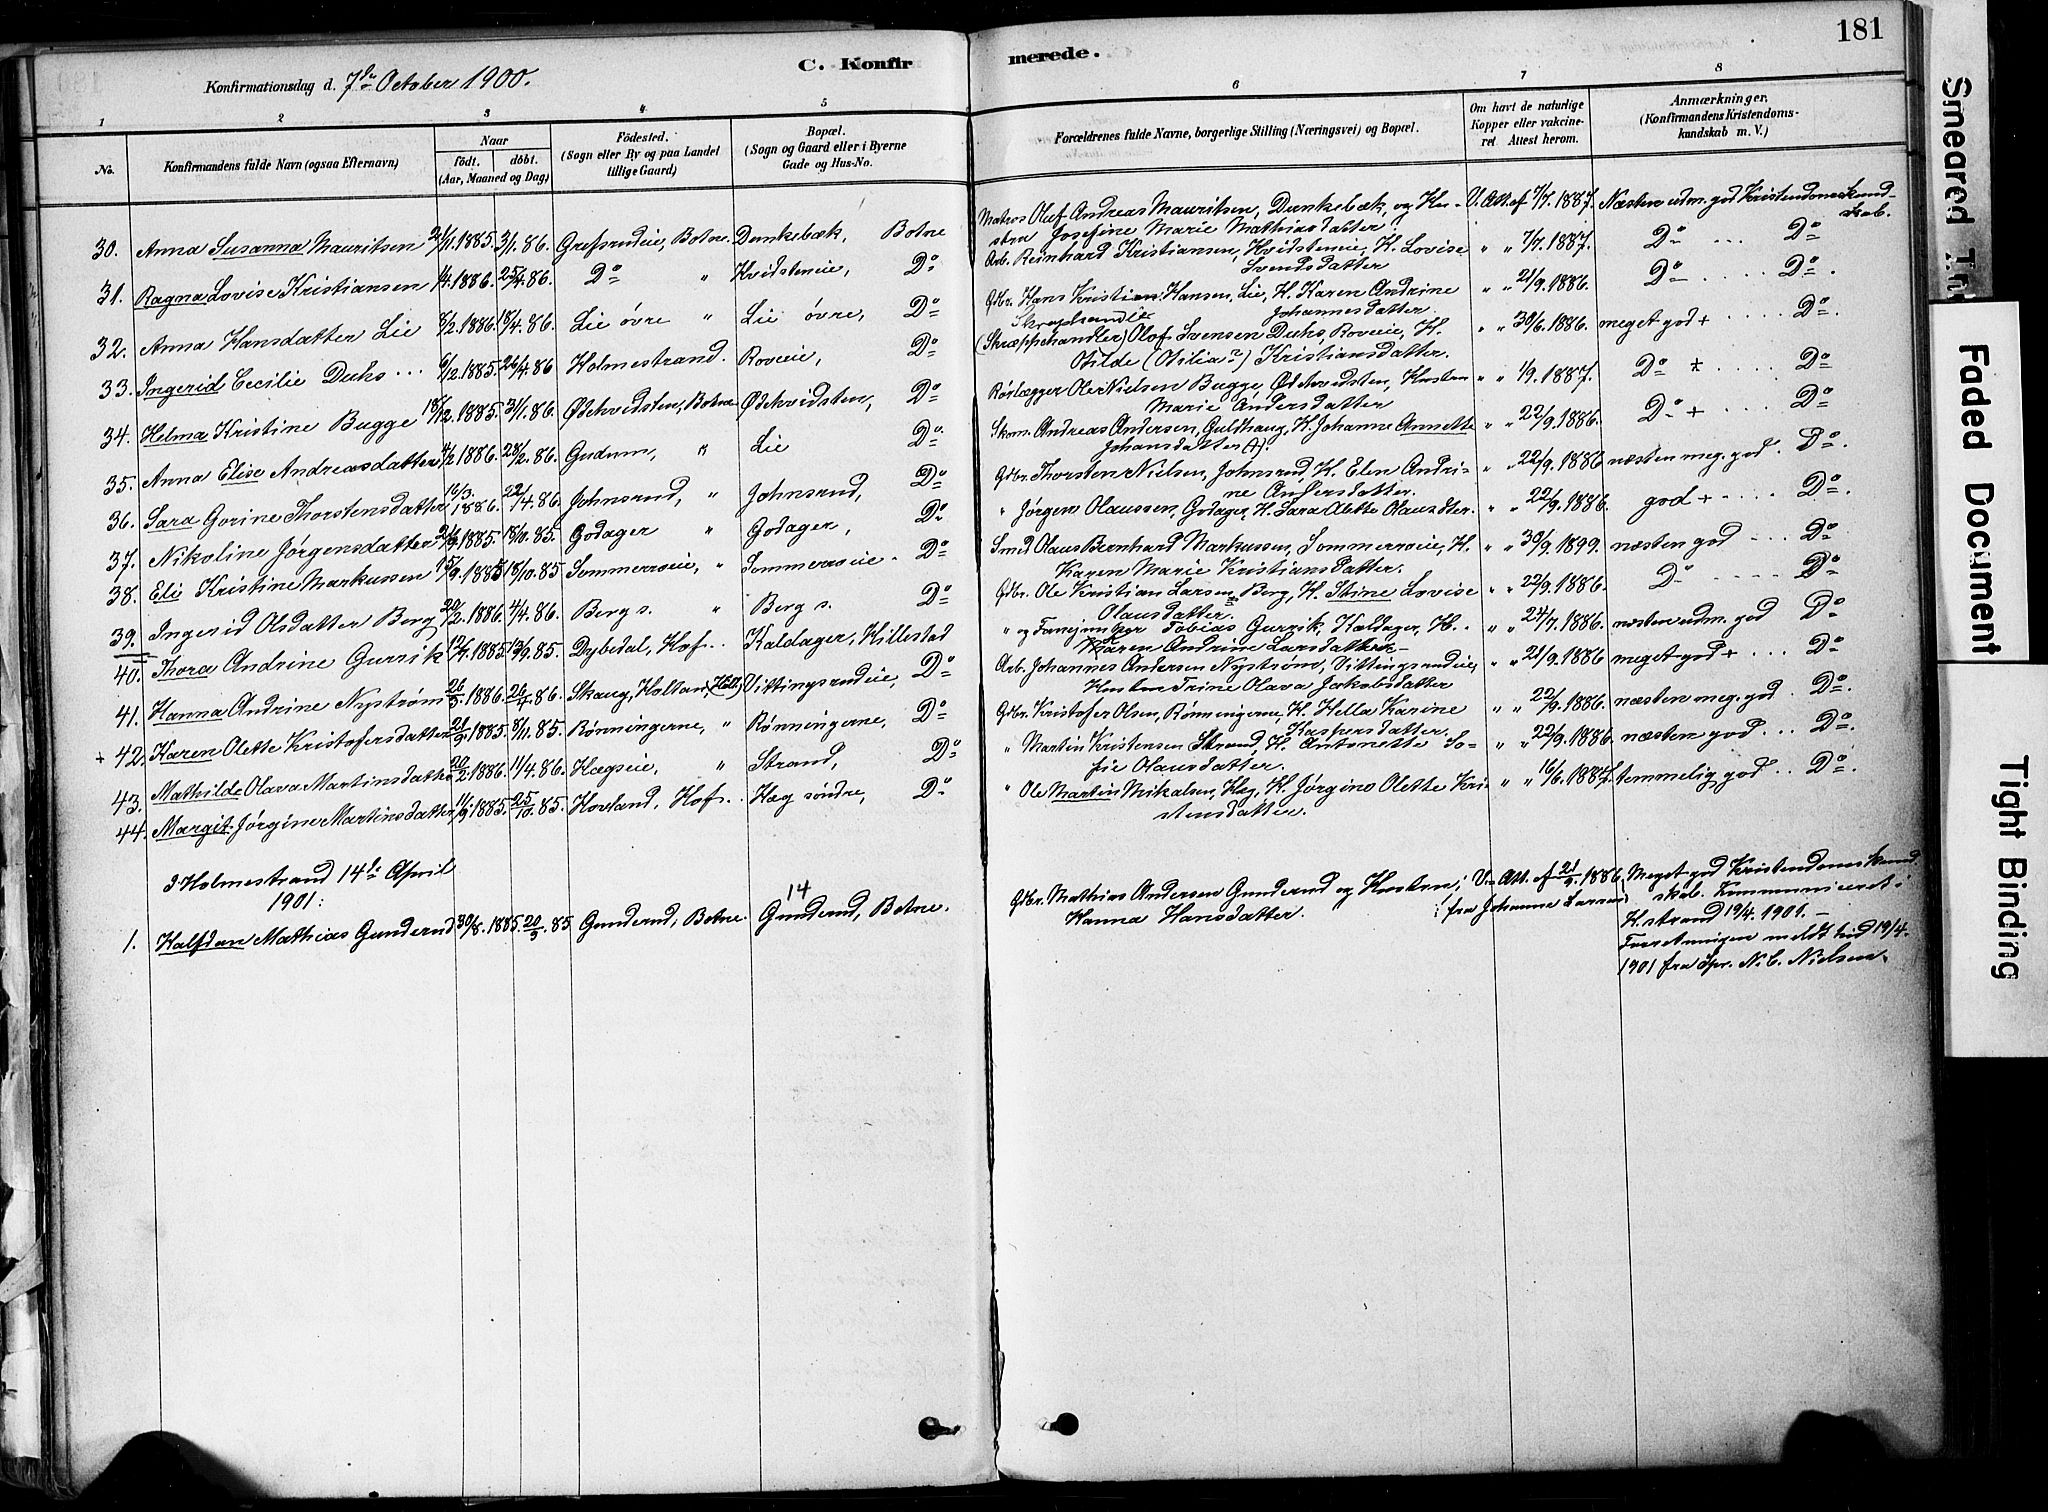 181
C. Konfirmerede.
Konfirmationsdag d. 7de October 1900.
1 2 3 4 5 6 7 8
No.
Konfirmandens fulde Navn (ogsaa Efternavn)
Naar
født. døbt.
(Aar, Maaned og Dag)
Fødested.
(Sogn eller By og paa Landet
tillige Gaard)
Bopæl.
(Sogn og Gaard eller i Byerne
Gade og Hus-No.
Forældrenes fulde Navne, borgerlige Stilling (Næringsvei) og Bopæl.
Om havt de naturlige
Kopper eller vakcine-
ret. Attest herom.
Anmærkninger.
(Konfirmandens Kristendoms-
kundskab m. V.)
30. Anna Susanna Mauritsen 2/11.1885. 3/1.86. Grefsrudeie, Botne. Dunkebæk, Botne Matros Oluf Andreas Mauritsen, Dunkebæk, og Hu- V. Att. af 7/7.1887. Næsten udm. god Kristendomskund-
stru Josefine Marie Mathiasdatter skab.
31. Ragna Lovise Kristiansen 1/4.1886. 25/4.86. Do " Hvidsteneie, Do Arb. Reinhard Kristiansen, Hvidsteneie, H. Lovise " " 7/7.1887. Do ... Do
Svendsdatter
32. Anna Hansdatter Lie 8/2.1886. 18/4.86. Lie øvre " Lie øvre, Do Gbr. Hans Kristian Hansen, Lie, H. Karen Andrine " " 21/9.1886. Do .... Do.
Johannesdatter
33. Ingerid Cecilie Duhs ... 6/12.1885. 26/4.86 Holmestrand. Roveie, Do (Skræppehandler) Olof Svensen Duhs, Roveie, H. " " 30/6.1886. meget god + ... Do.
Otilde (Otilia?) Kristiansdatter.
34. Helma Kristine Bugge 18/12.1885. 31/1.86. Ødehvidsten, Botne Ødehvidsten, Do Rørlægger Ole Nielsen Bugge, Ødehvidsten, Hustru " " 1/9.1887. Do + .... Do
Marie Andersdatter
35. Anna Elise Andreasdatter 4/2.1886. 28/2.86. Gudum, " Lie Do Skom. Andreas Andersen, Guldhaug, H. Johanne Annette " " 22/9.1886. Do + .... Do
Johansdatter (†).
36. Sara Gorine Thorstensdatter 16/3.1886. 22/4.86. Johnsrud, " Johnsrud, Do Gbr. Thorsten Nielsen, Johnsrud, H. Elen Andri- " " 22/9.1886 næsten meg. god. Do.
ne Andersdatter.
37. Nikoline Jørgensdatter 21/9.1885. 18/10.85. Godager " Godager, Do " Jørgen Olaussen, Godager, H. Sara Olette Olausdter. " " 22/9.1886. god + .... Do.
38. Elie Kristine Markussen 15/9.1885 18/10.85 Sommerroeie, " Sommerroeie. Do Smed Olaus Bernhard Markussen, Sommerroeie, H. " " 30/9.1899. næsten god ... Do
Karen Marie Kristiansdatter.
39. Ingerid Olsdatter Berg 20/2.1886. 4/4.86. Berg s. " Berg s. Do Gbr. Ole Kristian Larsen Berg, H. Stine Lovise " " 22/9.1886. Do .... Do
Olausdatter.
40. Thora Andrine Gurrik 12/7.1885. 13/9.85. Dybedal, Hof.. Kaldager, Hillestad " og Fanejunker Tobias Gurrik, Kaldager, H. " " 24/7.1886. næsten udm. god Do
Karen Andrine Larsdatter
41. Hanna Andrine Nystrøm 26/3.1886. 26/4.86. Skaug, Holtan, (Hill.) Vittingsrudeie, Do Arb. Johannes Andersen Nystrøm, Vittingsrudeie, " " 21/9.1886 meget god + ... Do
Hustru Trine Olava Jakobsdatter
+ 42. Karen Olette Kristofersdatter 21/9.1885. 8/11.85. Rønningerne, " Rønningerne, Do Gbr. Kristofer Olsen, Rønningerne, H. Hella Karine " " 22/9.1886. næsten meg. god. Do.
Kaspersdatter.
43. Mathilde Olava Martinsdatter 20/2.1886. 11/4.86. Hægseie, " Strand, Do " Martin Kristensen Strand, H. Antonette So- " " 22/9.1886. næsten god ... Do.
fie Olausdatter.
44. Margit Jørgine Martinsdatter 11/9.1885. 25/10.85. Hovland, Hof.. Hæg søndre, Do " Ole Martin Mikalsen, Hæg, H. Jørgine Olette Kri- " " 16/6.1887. temmelig god .. Do.
stensdatter.
I Holmestrand 14de April
1901:
14
1. Halfdan Mathias Gunderud 30/8.1885. 20/9.85 Gunderud, Botne. Gunderud, Botne. Gbr. Mathias Andersen Gunderud og Hustru, V. Att. af 21/9.1886, Meget god Kristendomskund-
Hanna Hansdatter. fra Johanne Larsen skab. Kommuniceret i
H.strand 19/4.1901. —
Forretningen meldt hid 19/4.
1901 fra Spr. N.C. Nielsen.
Smeared
Faded Document
Tight Binding